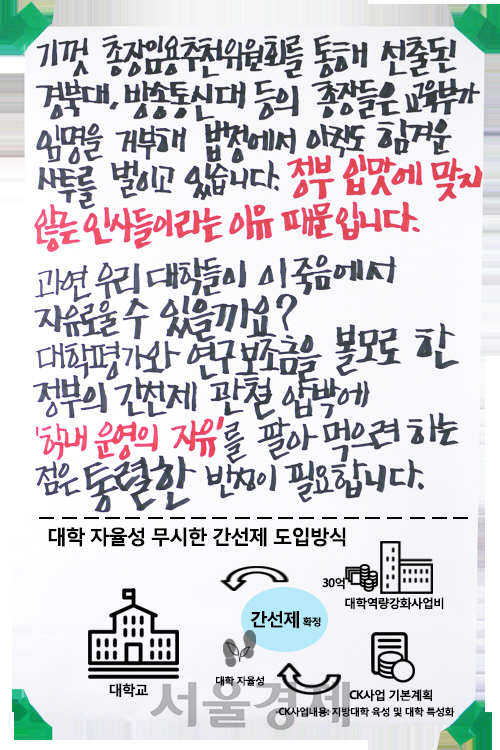 기껏 총장임용추천위원회를 통해 선출된
경북대, 방송통신대 등의 총장들은 교육부가
임명을 거부해 법정에서 아직도 힘겨운
사투를 벌이고 있습니다. 정부 입맛에 맞지
않는 인사들이라는 이유 때문입니다.
과연 우리 대학들이 이 죽음에서
자유로울 수 있을까요?
대학평가와 연구보조금을 볼모로 한
정부의 간선제 관철 압박에
'학내 운영의 자유'를 팔아 먹으려 하는
점은 통렬한 반성이 필요합니다.
대학 자율성 무시한 간선제 도입방식
30억
대학역량강화사업비
간선제 확정
대학 자율성
대학교
CK사업 기본계획
-CK사업내용: 지방대학 육성 및 대학 특성화
서울경제